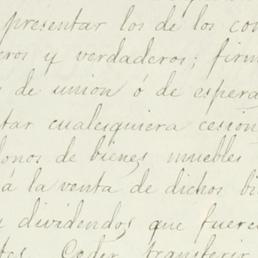 presentar los de los con
eros y verdaderos; firm
s de unión ó de espera
tar cualesquiera cesion
donos de bienes muebles
á la venta de dichos bi
y dividendos que fuere
tes. Ceder, transferir